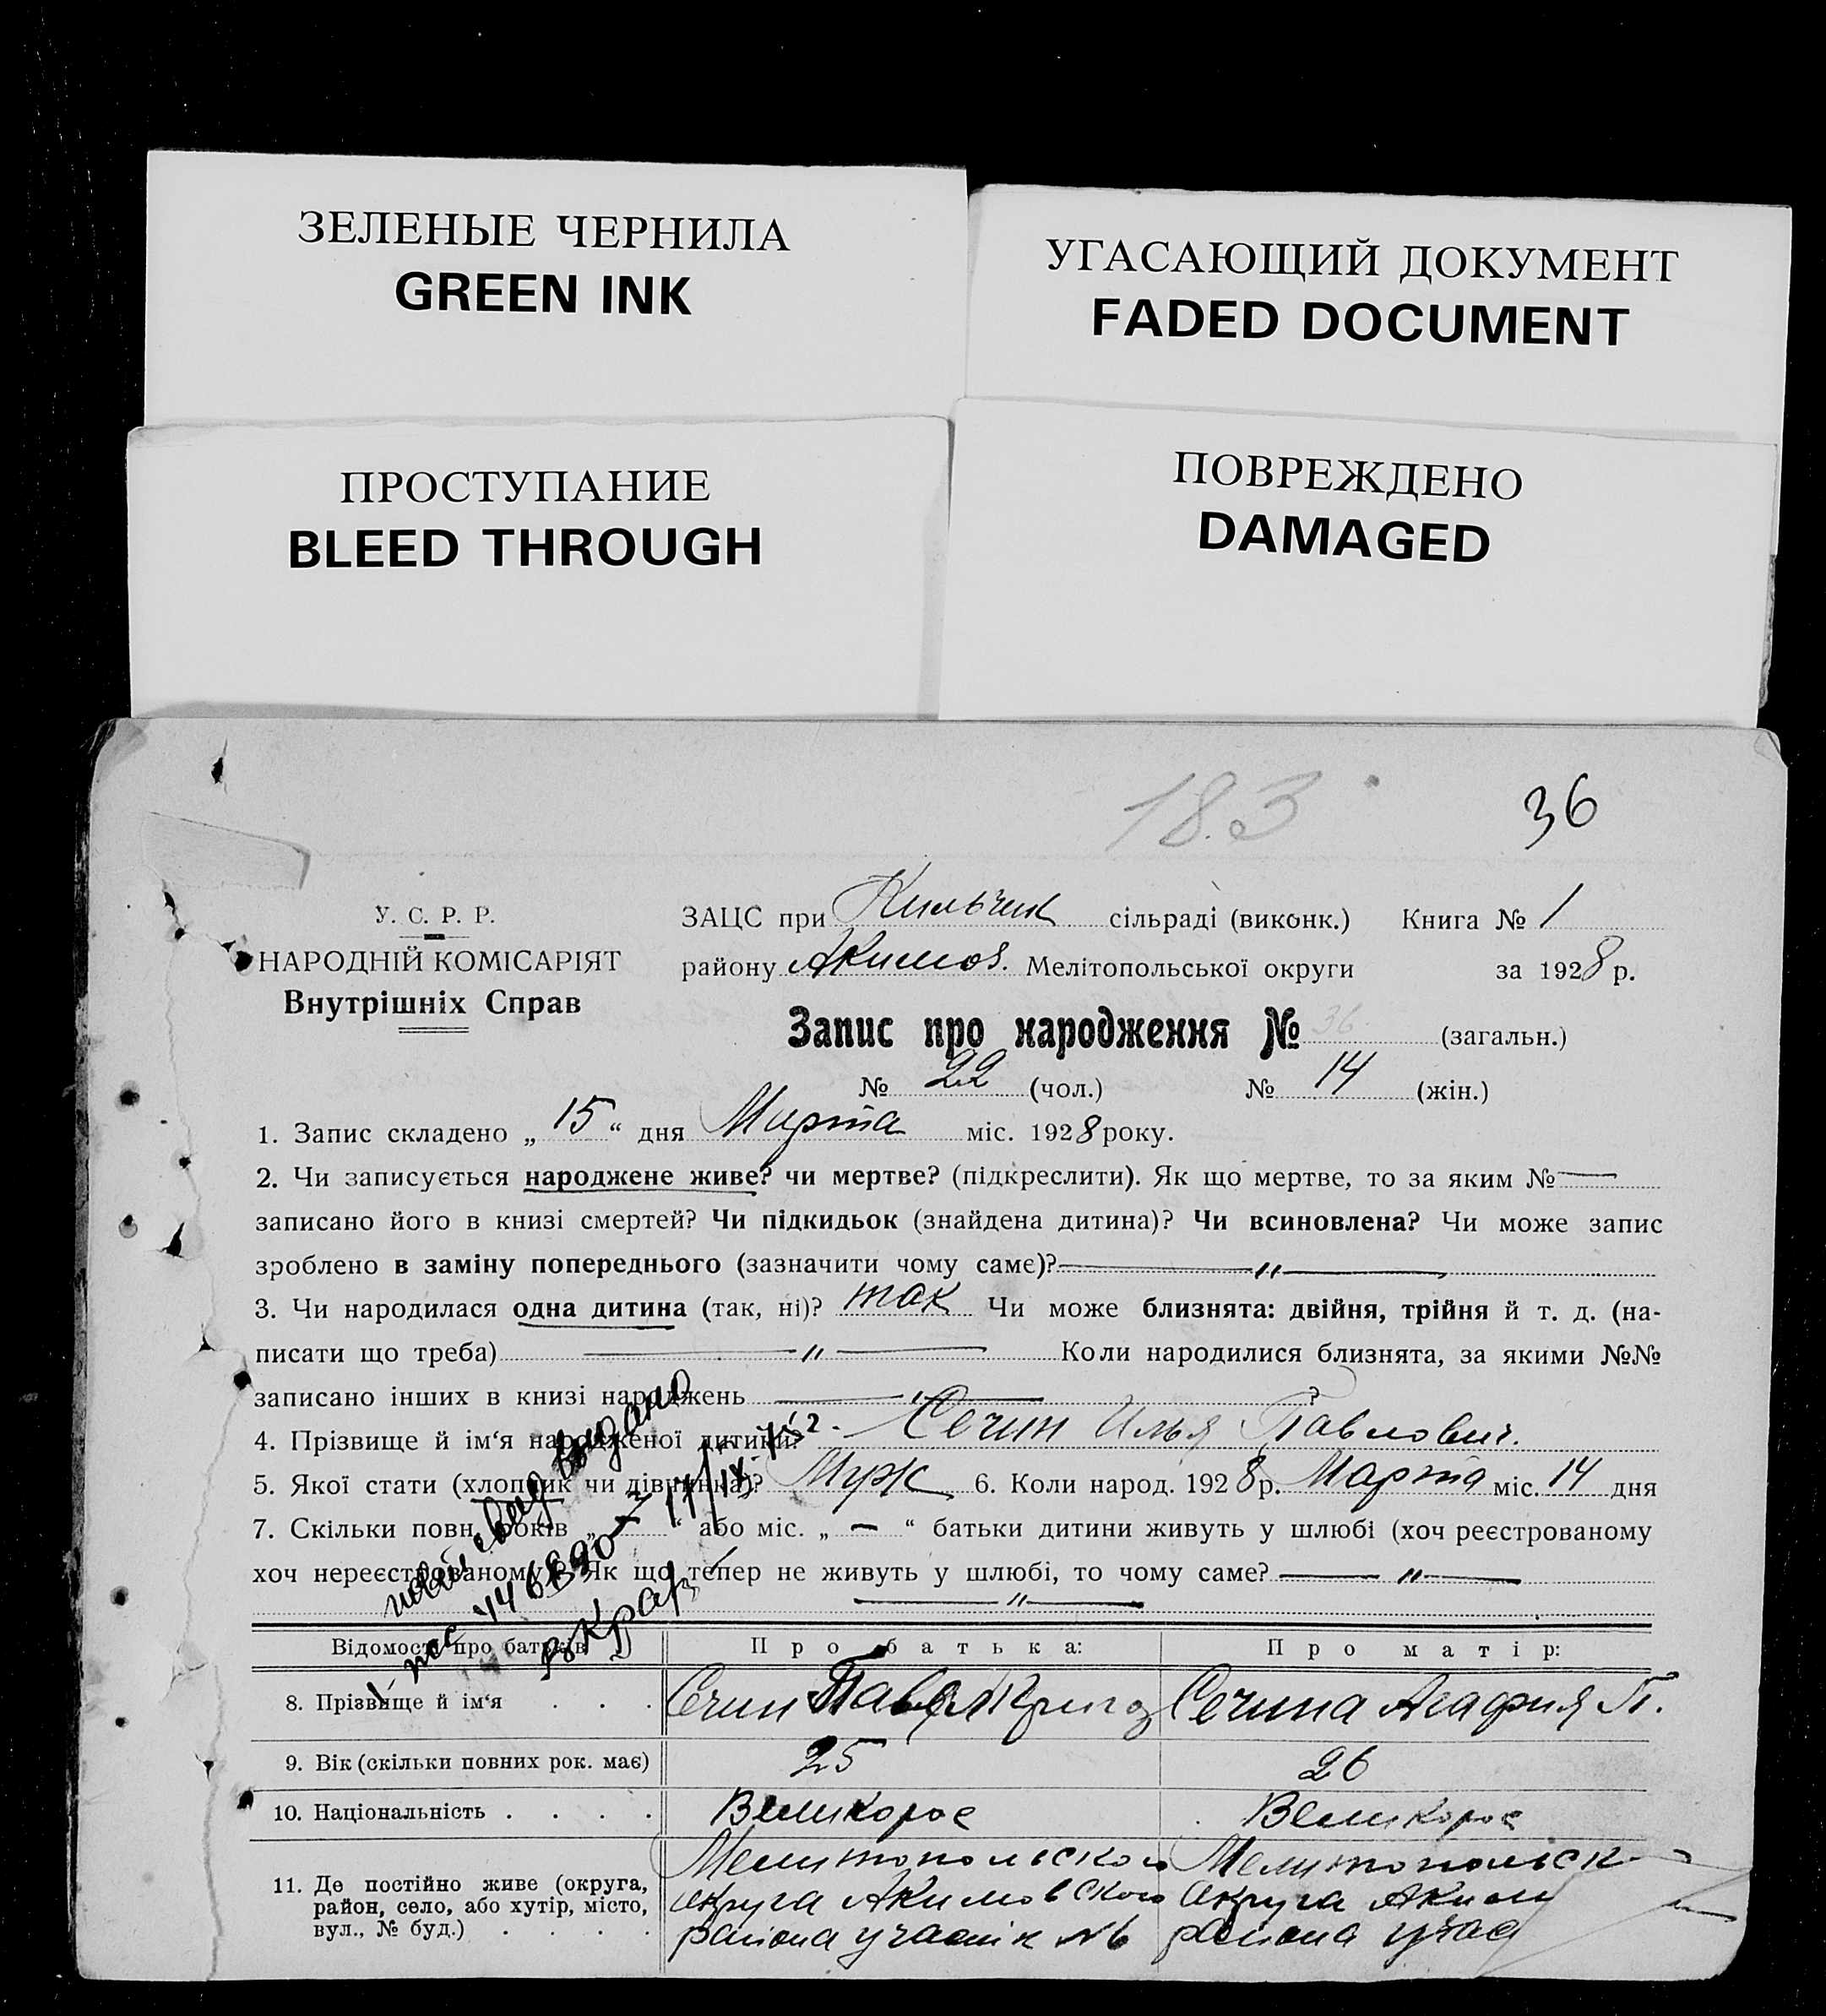 ЗЕЛЕНЫЕ ЧЕРНИЛА
GREEN INK
УГАСАЮЩИЙ ДОКУМЕНТ
FADED DOCUMENT
ПРОСТУПАНИЕ
BLEED THROUGH
ПОВРЕЖДЕНО
DAMAGED
183
36
У. С. Р. Р.
НАРОДНІЙ КОМІСАРІЯТ
Внутрішніх Справ
ЗАЦС при Кильчик сільраді (виконк.) Книга № 1
району Акимов. Мелітопольської округи за 1928 р.
Запис про народження № 36 (загальн.)
№ 22 (чол.) № 14 (жін.)
1. Запис складено „ 15 “ дня Марта міс. 1928 року.
2. Чи записується народжене живе? чи мертве? (підкреслити). Як що мертве, то за яким № —
записано його в книзі смертей? Чи підкидьок (знайдена дитина)? Чи всиновлена? Чи може запис
зроблено в заміну попереднього (зазначити чому саме)? — „ —
3. Чи народилася одна дитина (так, ні)? так Чи може близнята: двійня, трійня й т. д. (на-
писати що треба) — „ — Коли народилися близнята, за якими №№
записано інших в книзі народжень — „ — ?
4. Прізвище й ім‘я народженої дитини? Сечин Илья Павлович.
5. Якої стати (хлопчик чи дівчинка)? Муж 6. Коли народ. 1928 р. Марта міс. 14 дня
7. Скільки повн. років „ — “ або міс. „ — “ батьки дитини живуть у шлюбі (хоч реєстрованому
хоч нереєстрованому)? Як що тепер не живуть у шлюбі, то чому саме? — „ —
— „ —
видано
17/IX-752
Відомості про батьків
П р о б а т ь к а:
П р о м а т і р:
8. Прізвище й ім‘я . . . Сечин Павел Сечина Агафия П.
9. Вік (скільки повних рок. має) 25 26
10. Національність . . . . Великорос Великорос
11. Де постійно живе (округа,
район, село, або хутір, місто,
вул., № буд.) . . . .
Мелитопольского
округа Акимовского
района участк №6
Мелитопольск
округа Аким
района учас